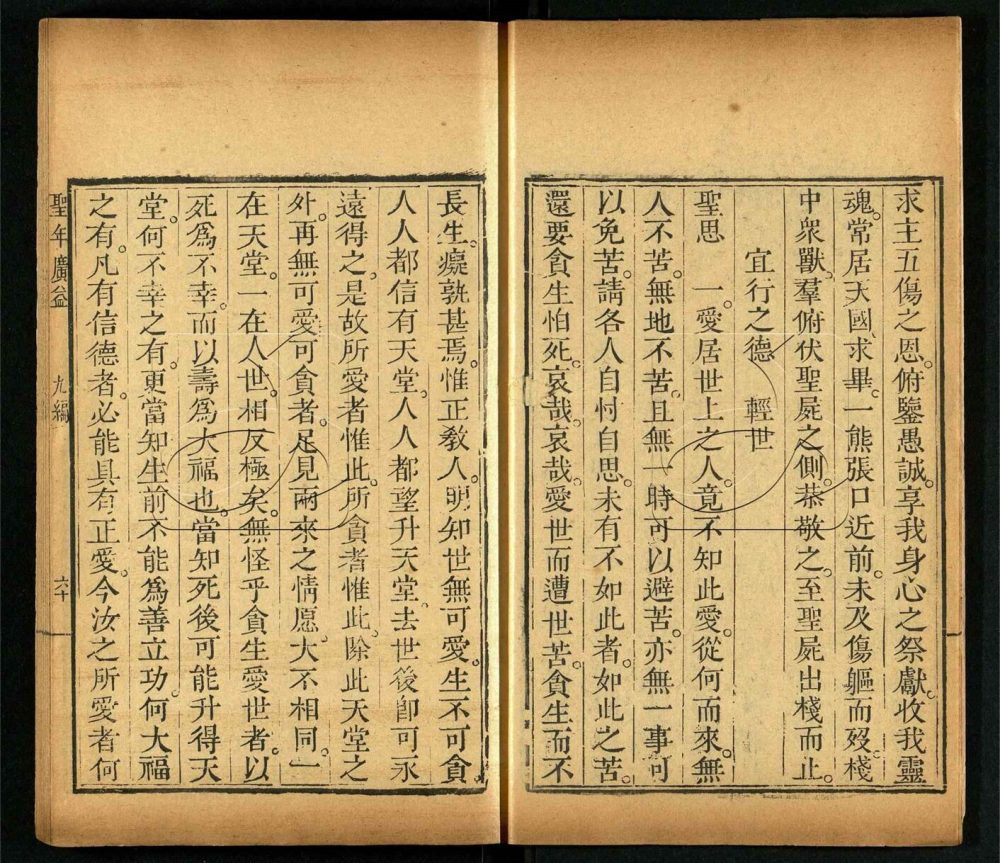 求主五傷之恩。俯鑒愚誠。享我身心之祭獻。收我靈
魂。常居天國。求畢。一熊張口近前。未及傷軀而歿。棧
中衆獸。羣俯伏聖屍之側。恭敬之。至聖屍出棧而止。
宜行之德　輕世
聖思　一愛居世上之人。竟不知此愛。從何而來。無
人不苦。無地不苦。且無一時可以避苦。亦無一事可
以免苦。請各人自忖自思。未有不如此者。如此之苦。
還要貪生怕死。哀哉。哀哉。愛世而遭世苦。貪生而不
長生。癡孰甚焉。惟正敎人。明知世無可愛。生不可貪。
人人都信有天堂。人人都望升天堂。去世後卽可永
遠得之。是故所愛者惟此。所貪者惟此。除此天堂之
外。再無可愛可貪者。足見兩來之情愿。大不相同。一
在天堂。一在人世。相反極矣。無怪乎貪生愛世者。以
死爲不幸。而以壽爲大福也。當知死後可能升得天
堂。何不幸之有。更當知生前不能爲善立功。何大福
之有。凡有信德者。必能具有正愛。今汝之所愛者何
聖年廣益　九編　六十